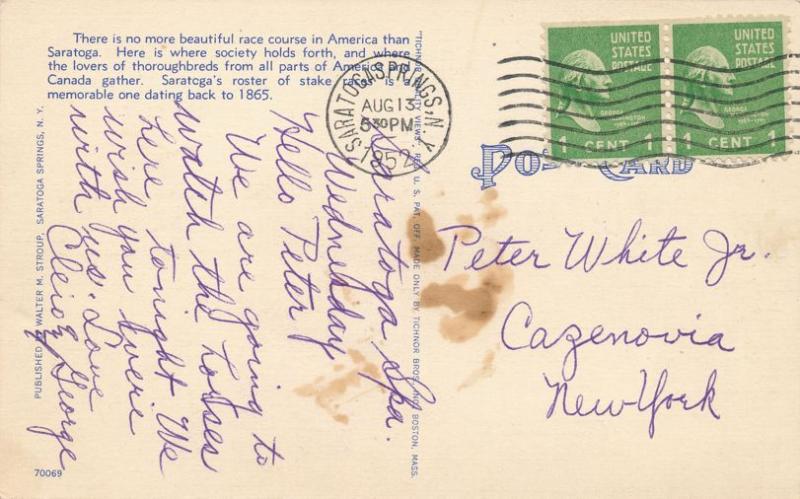 There is no more beautiful race course in America than
Saratoga. Here is where society holds forth, and where
the lovers of thoroughbreds from all parts of America and
Canada gather. Saratoga's roster of stake races is a
memorable one dating back to 1865.
PUBLISHED BY WALTER M. STROUP, SARATOGA SPRINGS, N. Y.
70069
"TICHNOR QUALITY VIEWS," REG. U. S. PAT. OFF. MADE ONLY BY TICHNOR BROS., BOSTON, MASS.
SARATOGA SPRINGS, N.Y.
AUG 13
5:30 PM
1952
UNITED
STATES
POSTAGE
GEORGE
WASHINGTON
1 CENT 1
UNITED
STATES
POSTAGE
GEORGE
1 CENT 1
POST CARD
Saratoga Spa.
Wednesday
Hello Peter
We are going to
watch the horses
here tonight. We
wish you were
with us. Love
George
Peter White Jr.
Cazenovia
New York